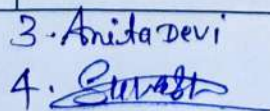 3. Anita Devi
4.